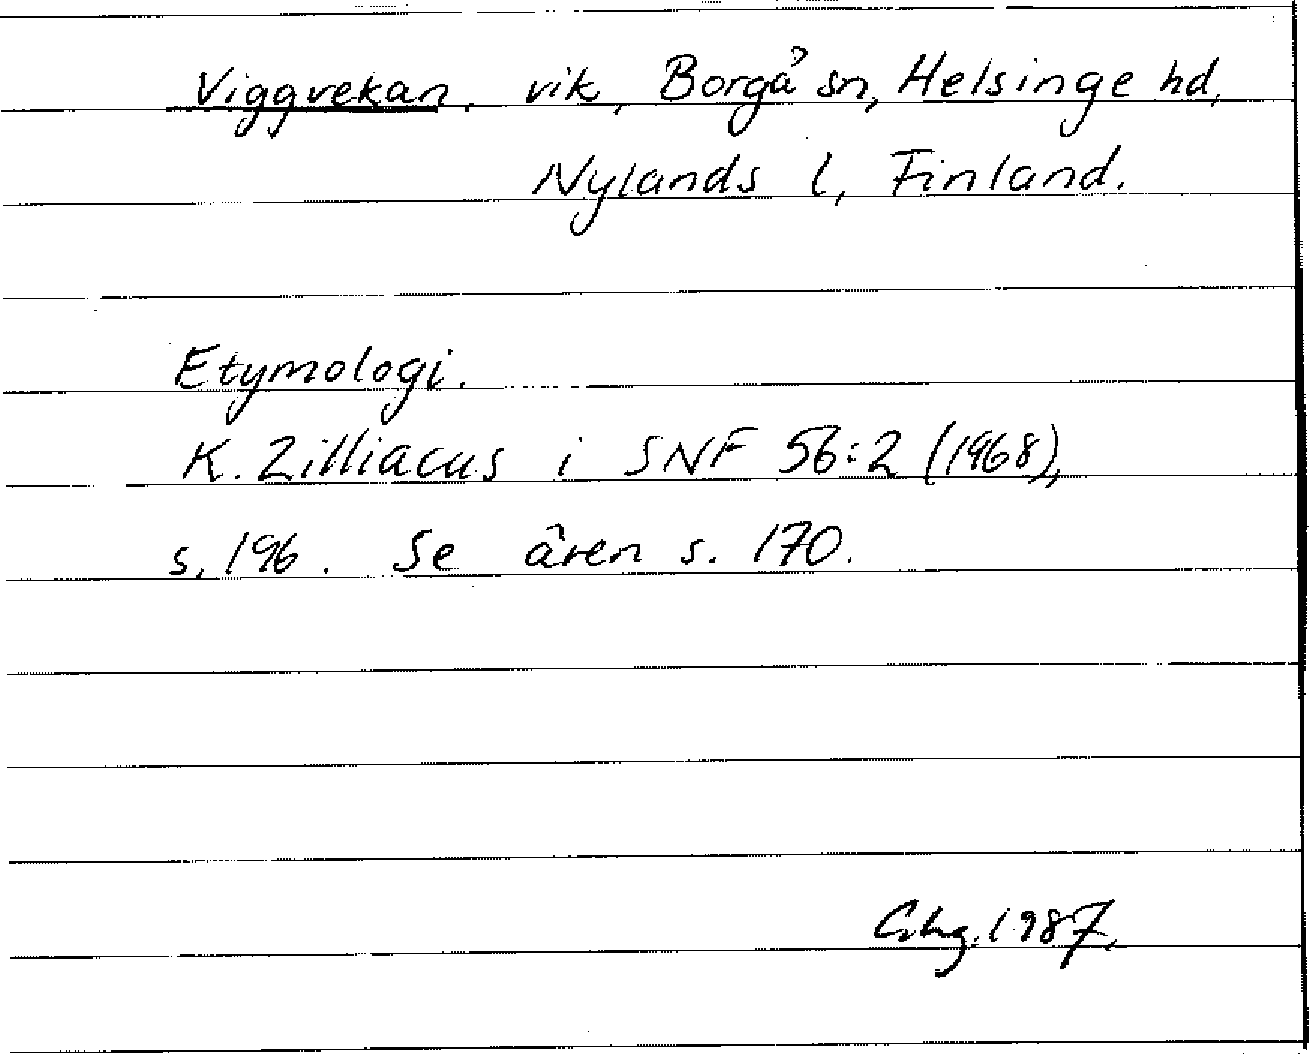 Viggvekan, vik, Borgå sn, Helsinge hd,
Nylands l, Finland.
Etymologi.
K. Zilliacus i SNF 56:2 (1968),
s. 196. Se även s. 170.
1987.